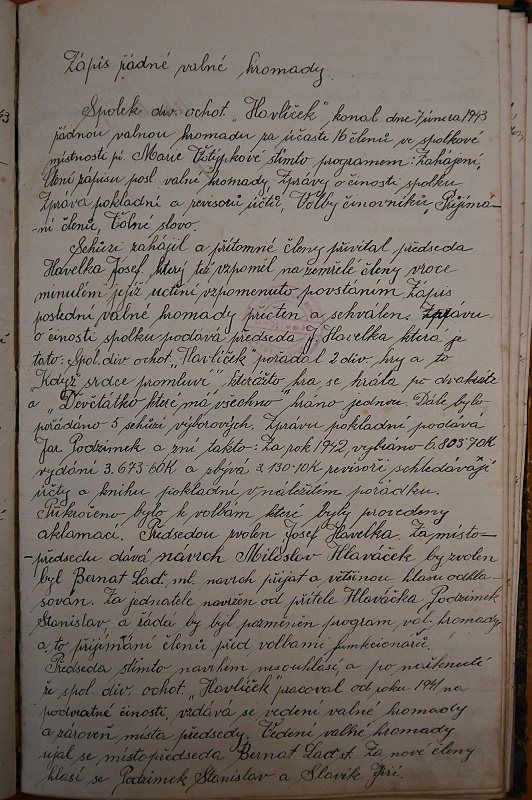 Zápis řádné valné hromady.
Spolek div. ochot. "Havlíček" konal dne 7 února 1943
řádnou valnou hromadu za účasti 16 členů ve spolkové
místnosti pí. Marie Votýpkové s tímto programem: Zahájení,
čtení zápisu posl. valné hromady, Zprávy o činosti spolku
Zpráva pokladní a revisorů účtů, Volby činovníků, Příjmá-
ní členů, Volné slovo.
Schůzi zahájil a přítomné členy přivítal předseda
Havelka Josef, který též vzpoměl na zemřelé členy vroce
minulém jejíž uctění vzpomenuto povstáním. Zápis
poslední valné hromady přečten a schválen. Zprávu
o činosti spolku podává předseda J. Havelka která je
tato: Spol. div. ochot. "Havlíček" pořádal 2 div. hry a to
"Když srdce promluví" kterážto hra se hrála po dvakráte
a "Děvčátko které má všechno" hráno jednou. Dále bylo
pořádáno 5 schůzí výborových. Zprávu pokladní podává
Jar. Podzimek a zní takto: Za rok 1942, vybráno 6.803 70K
vydání 3.673·60K a zbývá 3.130·10K revisoři schledávají
účty a knihu pokladní v náležitém pořádku.
Přikročeno bylo k volbám které byly provedeny
aklamací. Předsedou zvolen Josef Havelka. Za místo-
-předsedu dává návrch Miloslav Hlaváček by zvolen
byl Bernat Lad. ml. navrch přijat a většinou hlasu odhla-
sován. Za jednatele navržen od přítele Hlaváčka Podzimek
Stanislav, a žádá by byl pozměněn program val. hromady
a to přijímání členů před volbami funkcionářů.
Předseda stímto navrhem nesouhlasí a po
že spol. div. ochot. "Havlíček" pracoval od roku 1941 na
podvratné činosti, vzdává se vedení valné hromady
a zároveň místa předsedy. Vedení valné hromady
ujal se místopředseda Bernat Lad st. Za nové členy
hlasí se Podzimek Stanislav a Slavík Jiří.